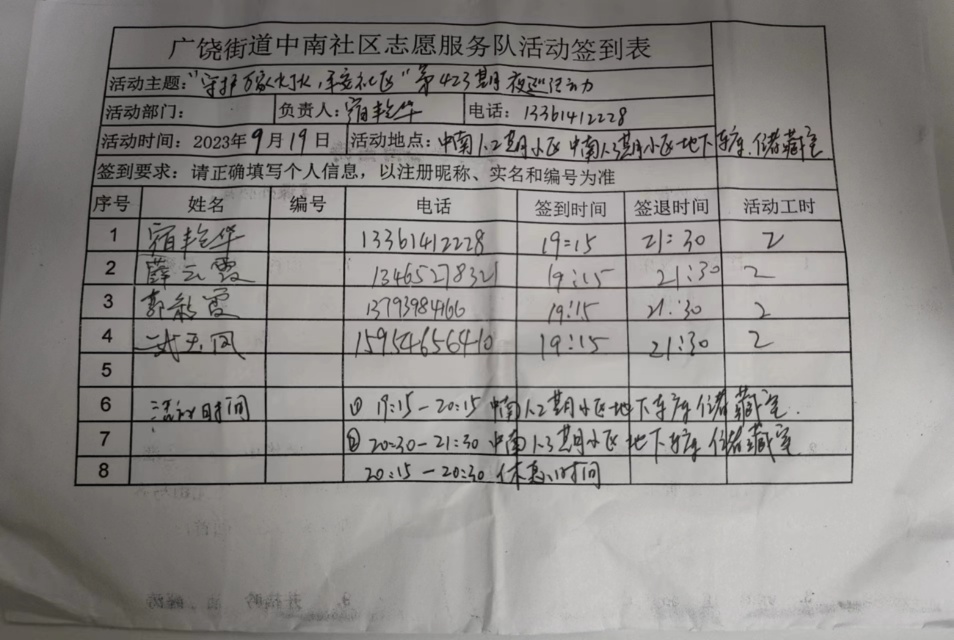 广饶街道中南社区志愿服务队活动签到表
活动主题:"守护万家灯火,平安社区"第423期夜巡活动
活动部门: 负责人:宿艳华 电话:13361412228
活动时间:2023年9月19日 活动地点:中南1.2期小区 中南1.3期小区地下车库.储藏室
签到要求:请正确填写个人信息,以注册昵称、实名和编号为准
序号 姓名 编号 电话 签到时间 签退时间 活动工时
1 宿艳华 13361412228 19:15 21:30 2
2 薛云霞 13465278321 19:15 21:30 2
3 郭彩霞 13793984166 19:15 21:30 2
4 武玉凤 15954656410 19:15 21:30 2
5
6 活动时间 ① 19:15-20:15 中南1.2期小区地下车库储藏室.
7 ② 20:30-21:30 中南1.3期小区地下车库储藏室
8 20:15-20:30 休息时间